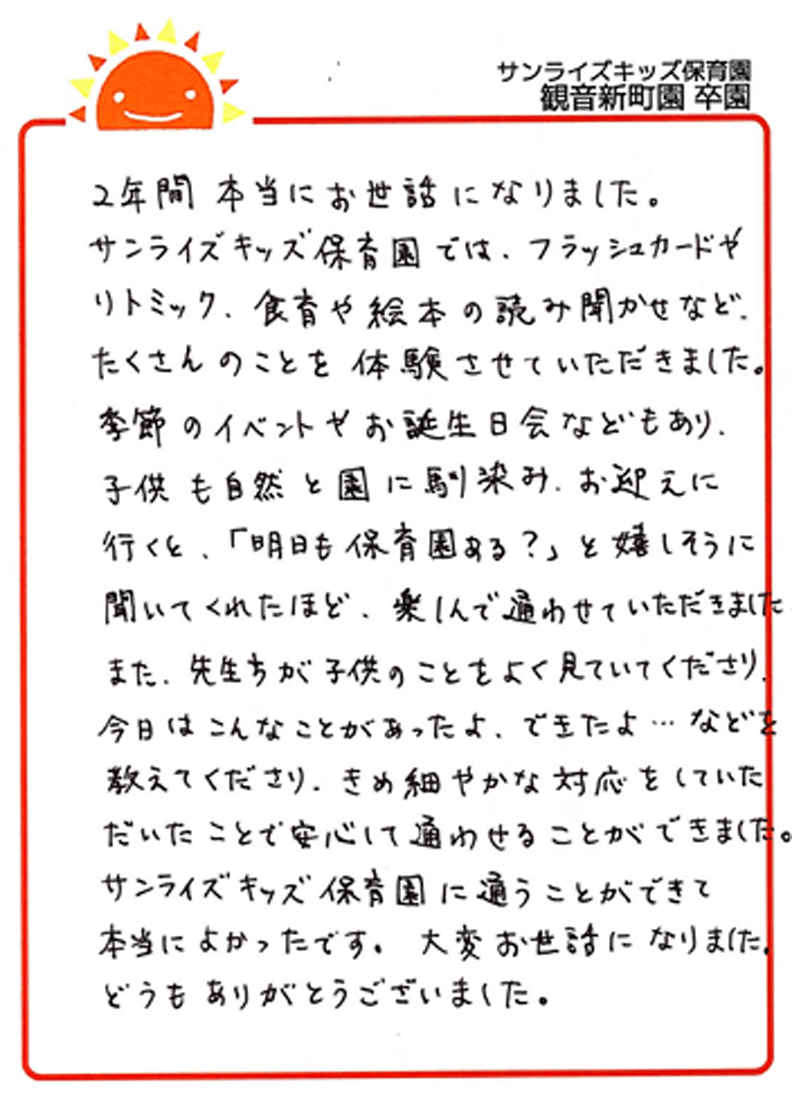 サンライズキッズ保育園
観音新町園 卒園
2年間 本当にお世話になりました。
サンライズキッズ保育園では、フラッシュカードや
リトミック、食育や絵本の読み聞かせなど、
たくさんのことを体験させていただきました。
季節のイベントやお誕生日会などもあり、
子供も自然と園に馴染み、お迎えに
行くと、「明日も保育園ある?」と嬉しそうに
聞いてくれたほど、楽しんで通わせていただきました。
また、先生方が子供のことをよく見ていてくださり、
今日はこんなことがあったよ、できたよ…などを
教えてくださり、きめ細やかな対応をしていた
だいたことで安心して通わせることができました。
サンライズキッズ保育園に通うことができて
本当によかったです。 大変お世話になりました。
どうもありがとうございました。